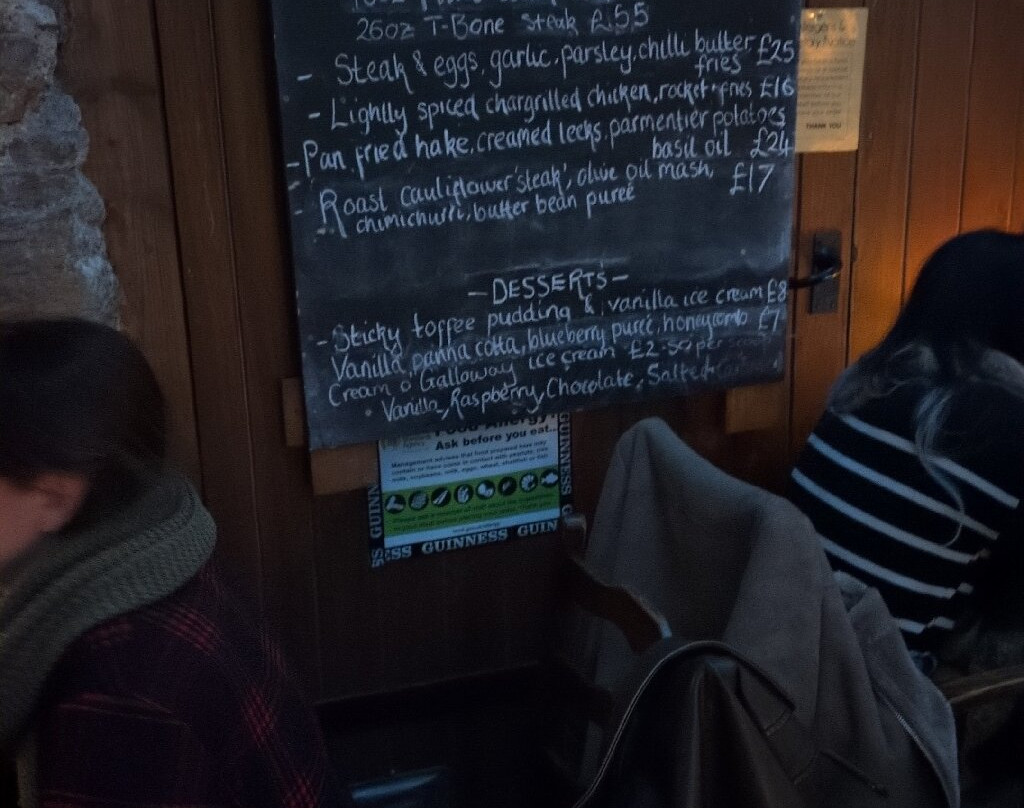 26oz T-Bone steak £55
- Steak & eggs, garlic, parsley, chilli butter £25
fries
- Lightly spiced chargrilled chicken, rocket + fries £16
- Pan fried hake, creamed leeks, parmentier potatoes
basil oil £24
- Roast cauliflower 'steak', olive oil mash, £17
chimichurri, butter bean pureé
- DESSERTS -
- Sticky toffee pudding & vanilla ice cream £8
Vanilla panna cotta, blueberry pureé, honeycomb £7
Cream o' Galloway ice cream £2.50 per
· Vanilla, Raspberry, Chocolate, Salted
THANK YOU
Food Allergy?
Ask before you eat...
GUINNESS
GUINNESS GUIN